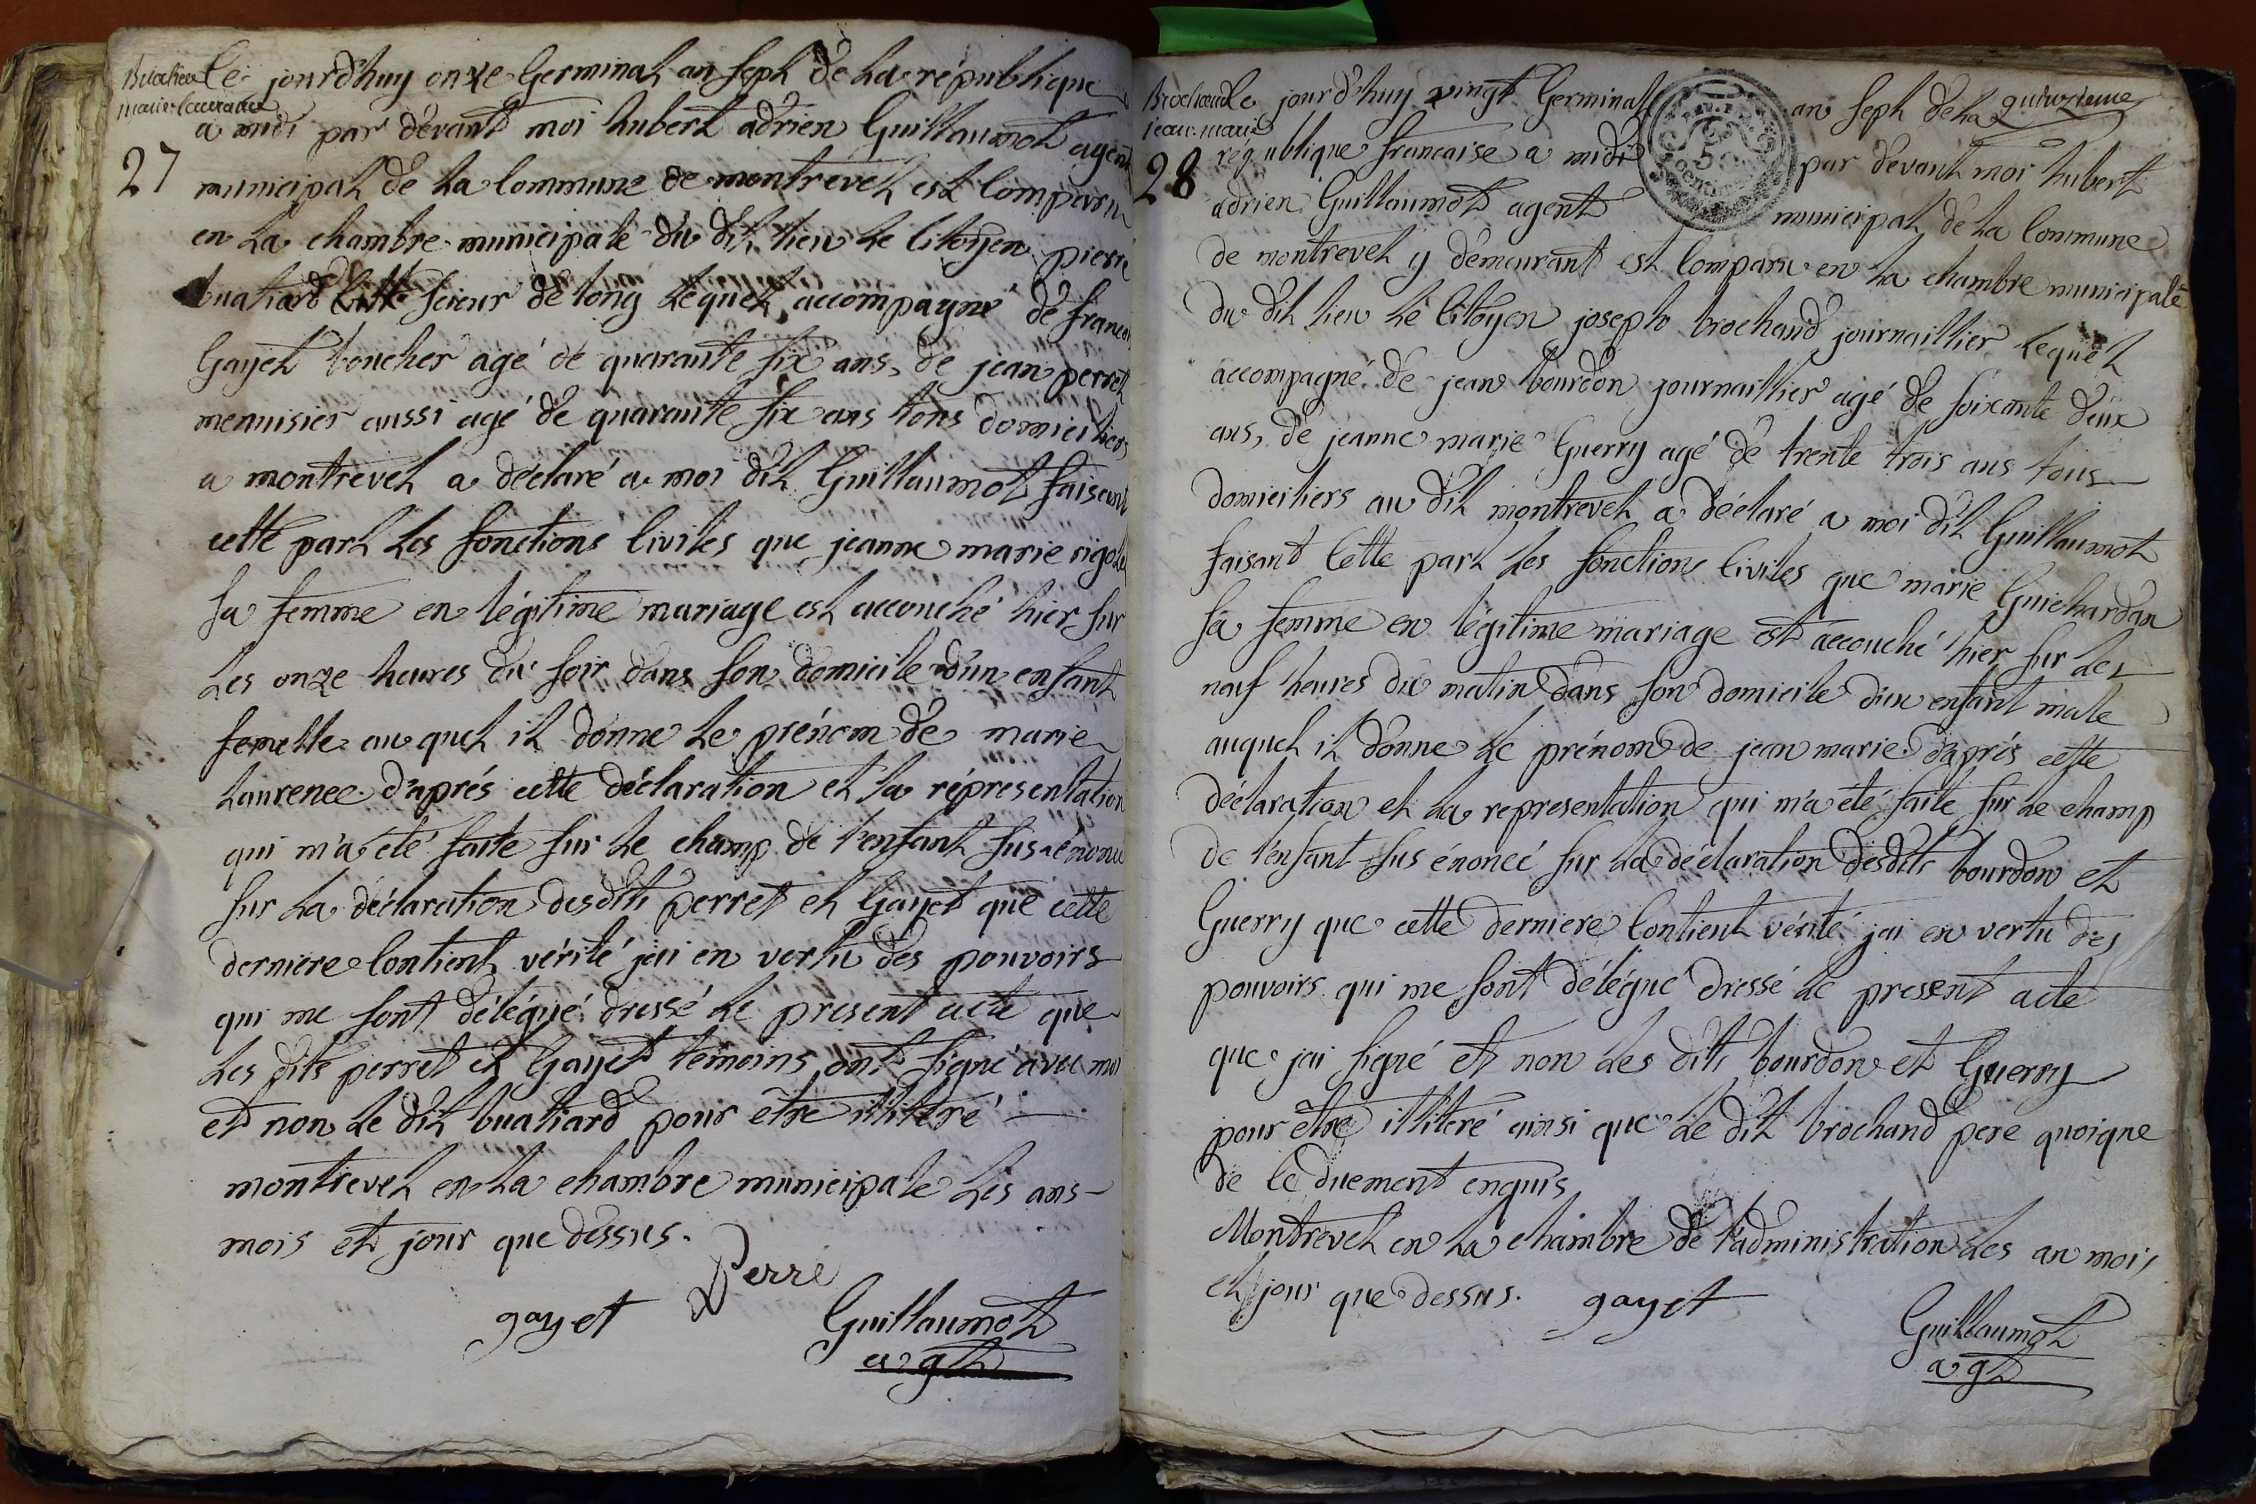 27
Le jourd'huy onze Germinal an sept de la république
a midi par devant moi hubert adrien Guillaumot agent
municipal de la Commune de montrevel est Comparu
en la chambre municipale du dit lieu le Citoyen pierre
buatiard scieur de long lequel accompagné de francois
Gayet boucher agé de quarante six ans, de jean perret
menuisier aussi agé de quarante six ans tous domiciliers
a montrevel a déclaré a moi dit Guillaumot faisant
cette part les fonctions Civiles que jeanne marie rigolet
sa femme en légitime mariage est accouché hier sur
les onze heures du soir dans son domicile d'un enfant
femelle au quel il donne le prénom de marie
Laurence d'aprés cette déclaration et la répresentation
qui m'a été faite sur le champ de l'enfant sus énoncé
sur la déclaration desdits perret et Gayet que cette
derniere Contient vérité jai en vertu des pouvoirs
qui me sont délégué dressé le présent acte que
les dits perret et Gayet témoins ont signé avec moi
et non le dit buatiard pour être illiteré
montrevel en la chambre municipale les ans
mois et jour que dessus.
Perré
gayet Guillaumot
agt
quinzieme
jean marie
28
Le jourd'huy vingt Germinal an sept de la
république francaise a midi par devant moi hubert
adrien Guillaumot agent municipal de la Commune
de montrevel y demeurant est Comparu en la chambre municipale
du dit lieu le Citoyen joseph brochand journaillier lequel
accompagné de jean bourdon journaillier agé de soixante deux
ans, de jeanne marie Guerry agé de trente trois ans tous
domiciliers au dit montrevel a déclaré a moi dit Guillaumot
faisant Cette part les fonctions Civiles que marie Guichardan
sa femme en légitime mariage est accouché hier sur les
neuf heures du matin dans son domicile d'un enfant male
auquel il donne le prénom de jean marie d'aprés cette
déclaration et la representation qui m'a été faite sur le champ
de l'enfant sus énoncé sur la déclaration desdits bourdon et
Guerry que cette derniere Contient vérité jai en vertu des
pouvoirs qui me sont délégué dressé le present acte
que jai signé et non les dits bourdon et Guerry
pour être illiteré ainsi que le dit brochand pere quoique
de Ce duement enquis
Montrevel en la chambre de l'administration les an mois
et jour que dessus. gayet
Guillaumot
agt